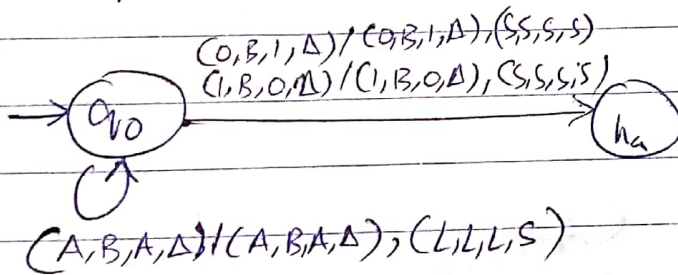 (0,B,1,Δ)/(0,B,1,Δ),(S,S,S,S)
(1,B,0,Δ)/(1,B,0,Δ),(S,S,S,S)
q0
ha
(A,B,A,Δ)/(A,B,A,Δ),(L,L,L,S)